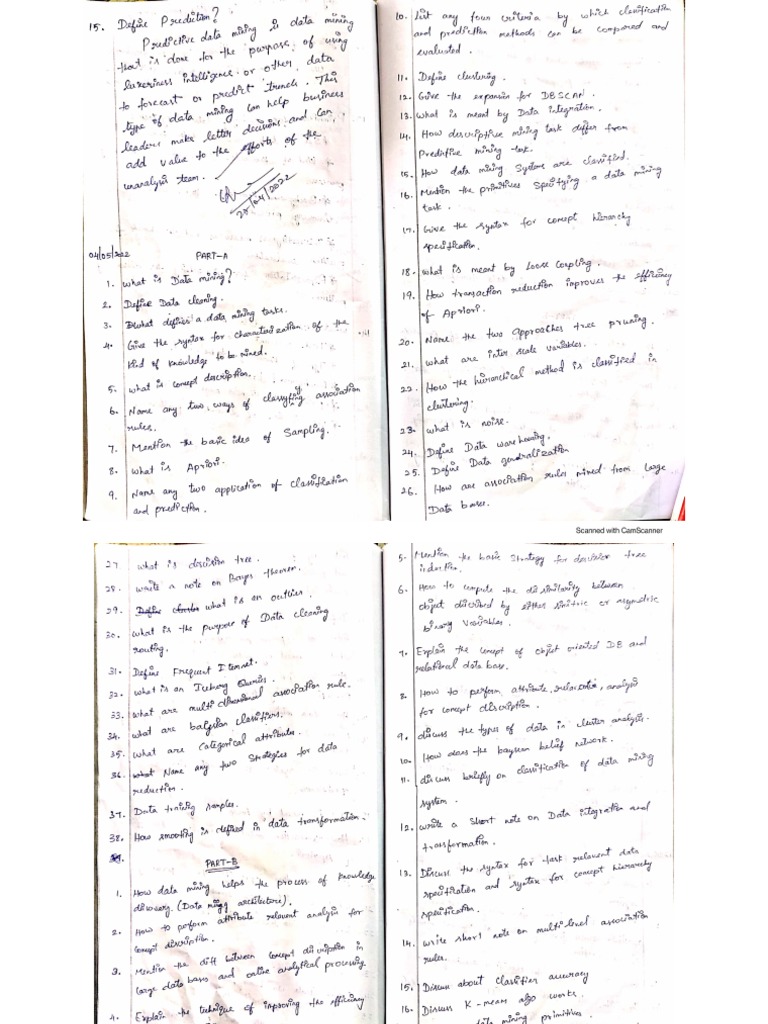 15. Define Prediction?
Predictive data mining is data mining
that is done for the purpose of using
intelligence or other data
to forecast or predict trends. This
type of data mining can help business
leaders make letter decisions and can
add value to the efforts of the
unanalysis team.
27/04/2022
04/05/2022
PART-A
1. what is Data mining?
2. Define Data cleaning.
3. what defines a data mining tasks.
4. Give the syntax for characterization of the
kind of knowledge to be mined.
5. what is concept description.
6. Name any two ways of classyfing association
rules.
7. Mention the basic idea of Sampling.
8. what is Apriori.
9. Name any two application of classification
and prediction.
10. List any four criteria by which classification
and prediction methods can be compared and
evaluated.
11. Define clustering.
12. Give the expansion for DBSCAN.
13. what is meant by Data integration.
14. How descriptive mining task differ from
Predictive mining task.
15. How data mining Systems are classified.
16. Mention the primitives specifying a data mining
task.
17. Give the syntax for concept hierarchy
specification.
18. what is meant by Loose coupling.
19. How transaction reduction improves the efficiency
of Apriori.
20. Name the two approaches tree pruning.
21. what are inter scale variables.
22. How the hierarchical method is classified in
clustering.
23. what is noise.
24. Define Data warehousing.
25. Define Data generalization
26. How are association rules mined from Large
Data bases.
Scanned with CamScanner
27. what is decision tree.
28. write a note on Bayes theorem.
29. Define what is an outlier.
30. what is the purpose of Data cleaning
routing.
31. Define Frequent Itemset.
32. what is an Iceburg Queries.
33. what are multi dimensional association rule.
34. what are baysian classifiers.
35. what are Categorical attributes.
36. what Name any two Strategies for data
reduction.
37. Data training samples.
38. How smooting is defined in data transformation.
PART-B
1. How data mining helps the process of knowledge
discovery. (Data mining architecture).
2. How to perform attribute relevent analysis for
concept discription.
3. Mention the diff between concept discription in
large data bases and online analytical processing
4. Explain the technique of improving the efficiency
5. Mention the basic strategy for decision tree
induction.
6. How to compute the dissimilarity between
object discribed by either simitric or asymetric
binary variables.
7. Explain the concept of object oriented DB and
relational data base.
8. How to perform attribute relevative, analysis
for concept discription.
9. discuss the types of data in cluster analysis.
10. How does the baysean belief network.
11. discuss briefly on classification of data mining
system.
12. write a short note on Data integration and
transformation.
13. Discuss the syntax for task relavent data
specification and syntax for concept hierarchy
specification.
14. write short note on multi-level association
rules.
15. Discuss about classifier accuracy
16. Discuss K-means algo works.
data mining primitives.